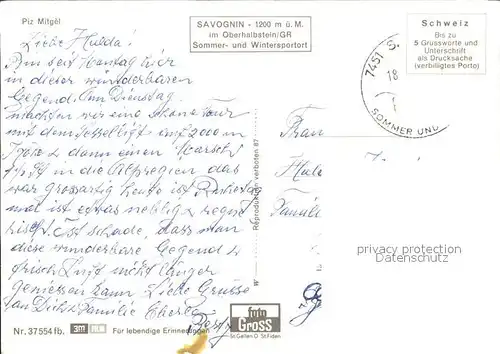 Piz Mitgèl
SAVOGNIN - 1200 m ü. M.
im Oberhalbstein/GR
Sommer- und Wintersportort
Schweiz
Bis zu
5 Grussworte und
Unterschrift
als Drucksache
(verbilligtes Porto)
7451 S
18
SOMMER UND
Liebe Hulda!
sind seit Montag hier
in dieser wunderbaren
Gegend. Am Dienstag
machten wir eine schöne Tour
mit dem Sessellift auf 2000 m
Höhe & dann einen Marsch
in die Alpregion das
war grossartig heute ist Ruhetag
mal ist etwas neblig & regne
risch. Ist schade, dass man
diese wunderbare Gegend &
frisch Luft nicht länger
geniessen kann. Liebe Grüsse
an Dich & Familie Eberle
Frau
Hul
Famil
privacy protection
Datenschutz
Reproduktion verboten 87
Nr. 37 554 fb.
Für lebendige Erinnerungen
foto
GROSS
St. Gallen O St. Fiden